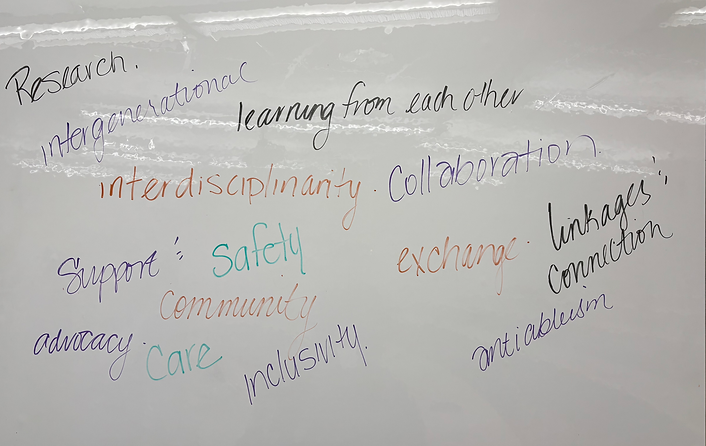 Research.
intergenerational
learning from each other
interdisciplinarity.
Collaboration.
Support
Safety
exchange.
linkages
connection
Community
advocacy.
Care
inclusivity.
antiableism